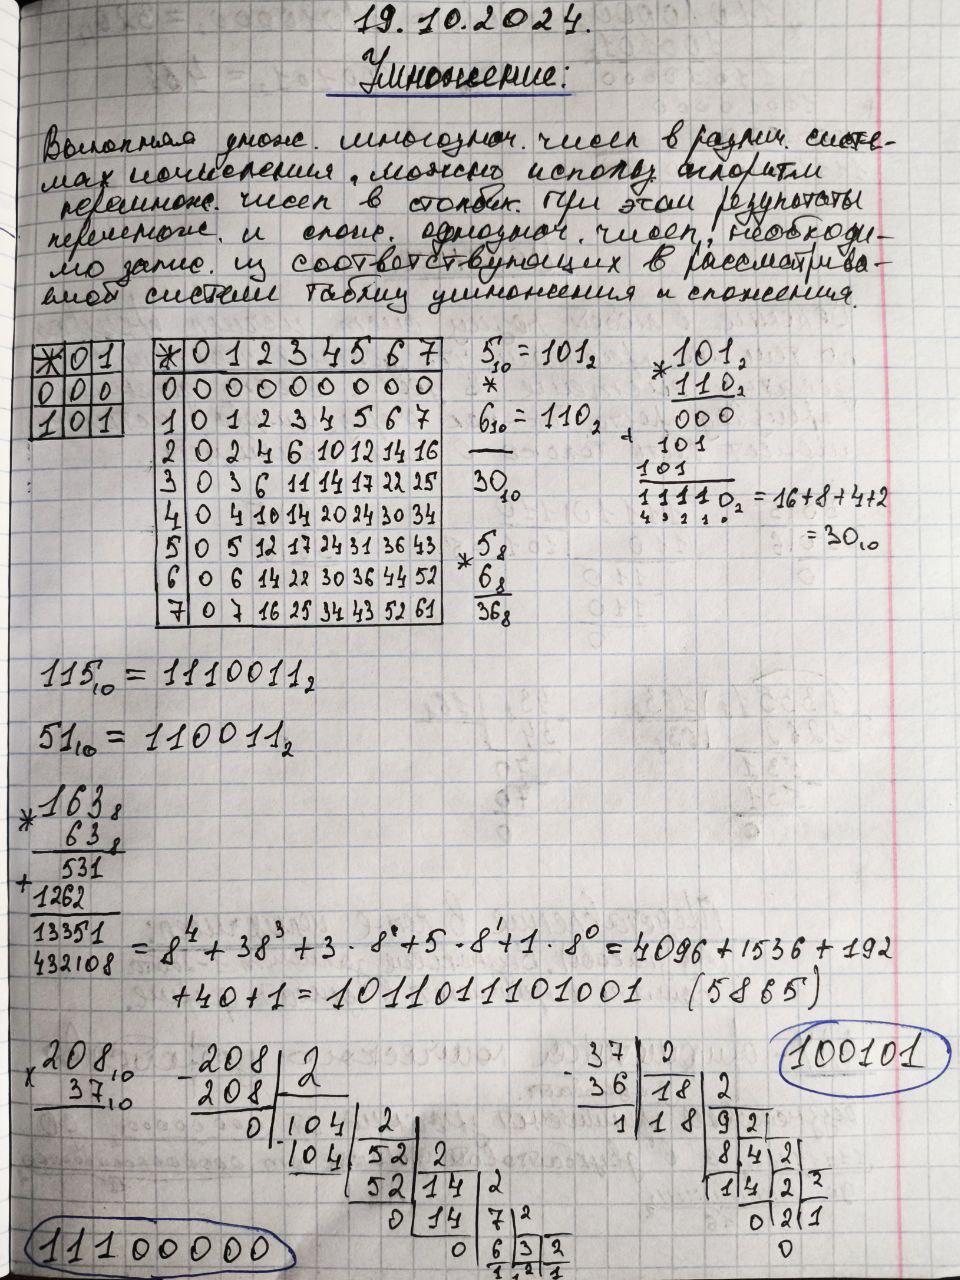 19.10.2024.
Умножение:
Выполняя умнож. многознач. чисел в различ. систе-
мах исчисления, можно использ. алгоритм
перемнож. чисел в столбик. При этом результаты
перемнож. и слож. однознач. чисел, необходи-
мо запис. из соответствующих в рассматрива-
емой системе таблиц умножения и сложения.
* 0 1
0 0 0
1 0 1
* 0 1 2 3 4 5 6 7
0 0 0 0 0 0 0 0 0
1 0 1 2 3 4 5 6 7
2 0 2 4 6 10 12 14 16
3 0 3 6 11 14 17 22 25
4 0 4 10 14 20 24 30 34
5 0 5 12 17 24 31 36 43
6 0 6 14 22 30 36 44 52
7 0 7 16 25 34 43 52 61
5₁₀ = 101₂
*
6₁₀ = 110₂
30₁₀
* 5₈
6₈
36₈
* 101₂
110₂
000
+ 101
101
11110₂ = 16+8+4+2
4 3 2 1 0
= 30₁₀
115₁₀ = 1110011₂
51₁₀ = 110011₂
* 163₈
63₈
531
+ 1262
13351 = 8⁴ + 38³ + 3 · 8² + 5 · 8¹ + 1 · 8⁰ = 4096 + 1536 + 192
432108
+40+1 = 1011011101001 (5865)
x 208₁₀
37₁₀
- 208 2
208 104 2
0 104 52 2
52 14 2
0 14 7 2
0 6 3 2
1 2 1
11100000
- 37 2
36 18 2
1 18 9 2
8 4 2
1 4 2 2
0 2 1
0
100101